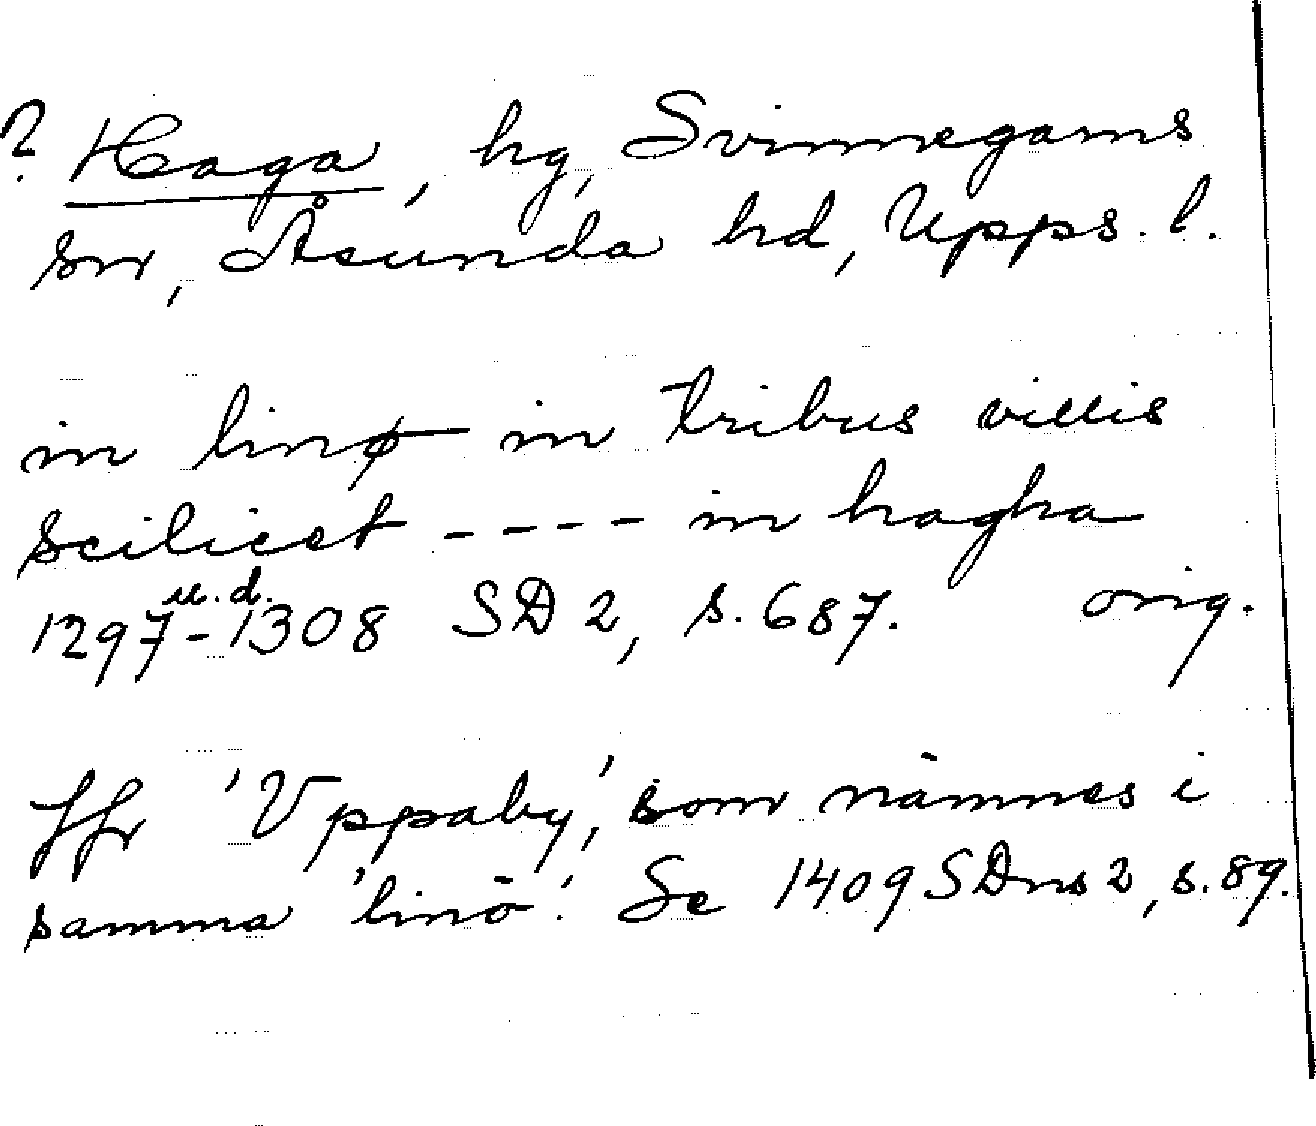 ? Haga, hg, Svinnegarns
sn, Åsunda hd, Upps. l.
in linø in tribus villis
scilicet ---- in hagha
u.d.
1297-1308 SD 2, s. 687. orig.
Jfr 'Vppaby', som nämnes i
samma 'linö'. Se 1409 SDns 2, s. 89.